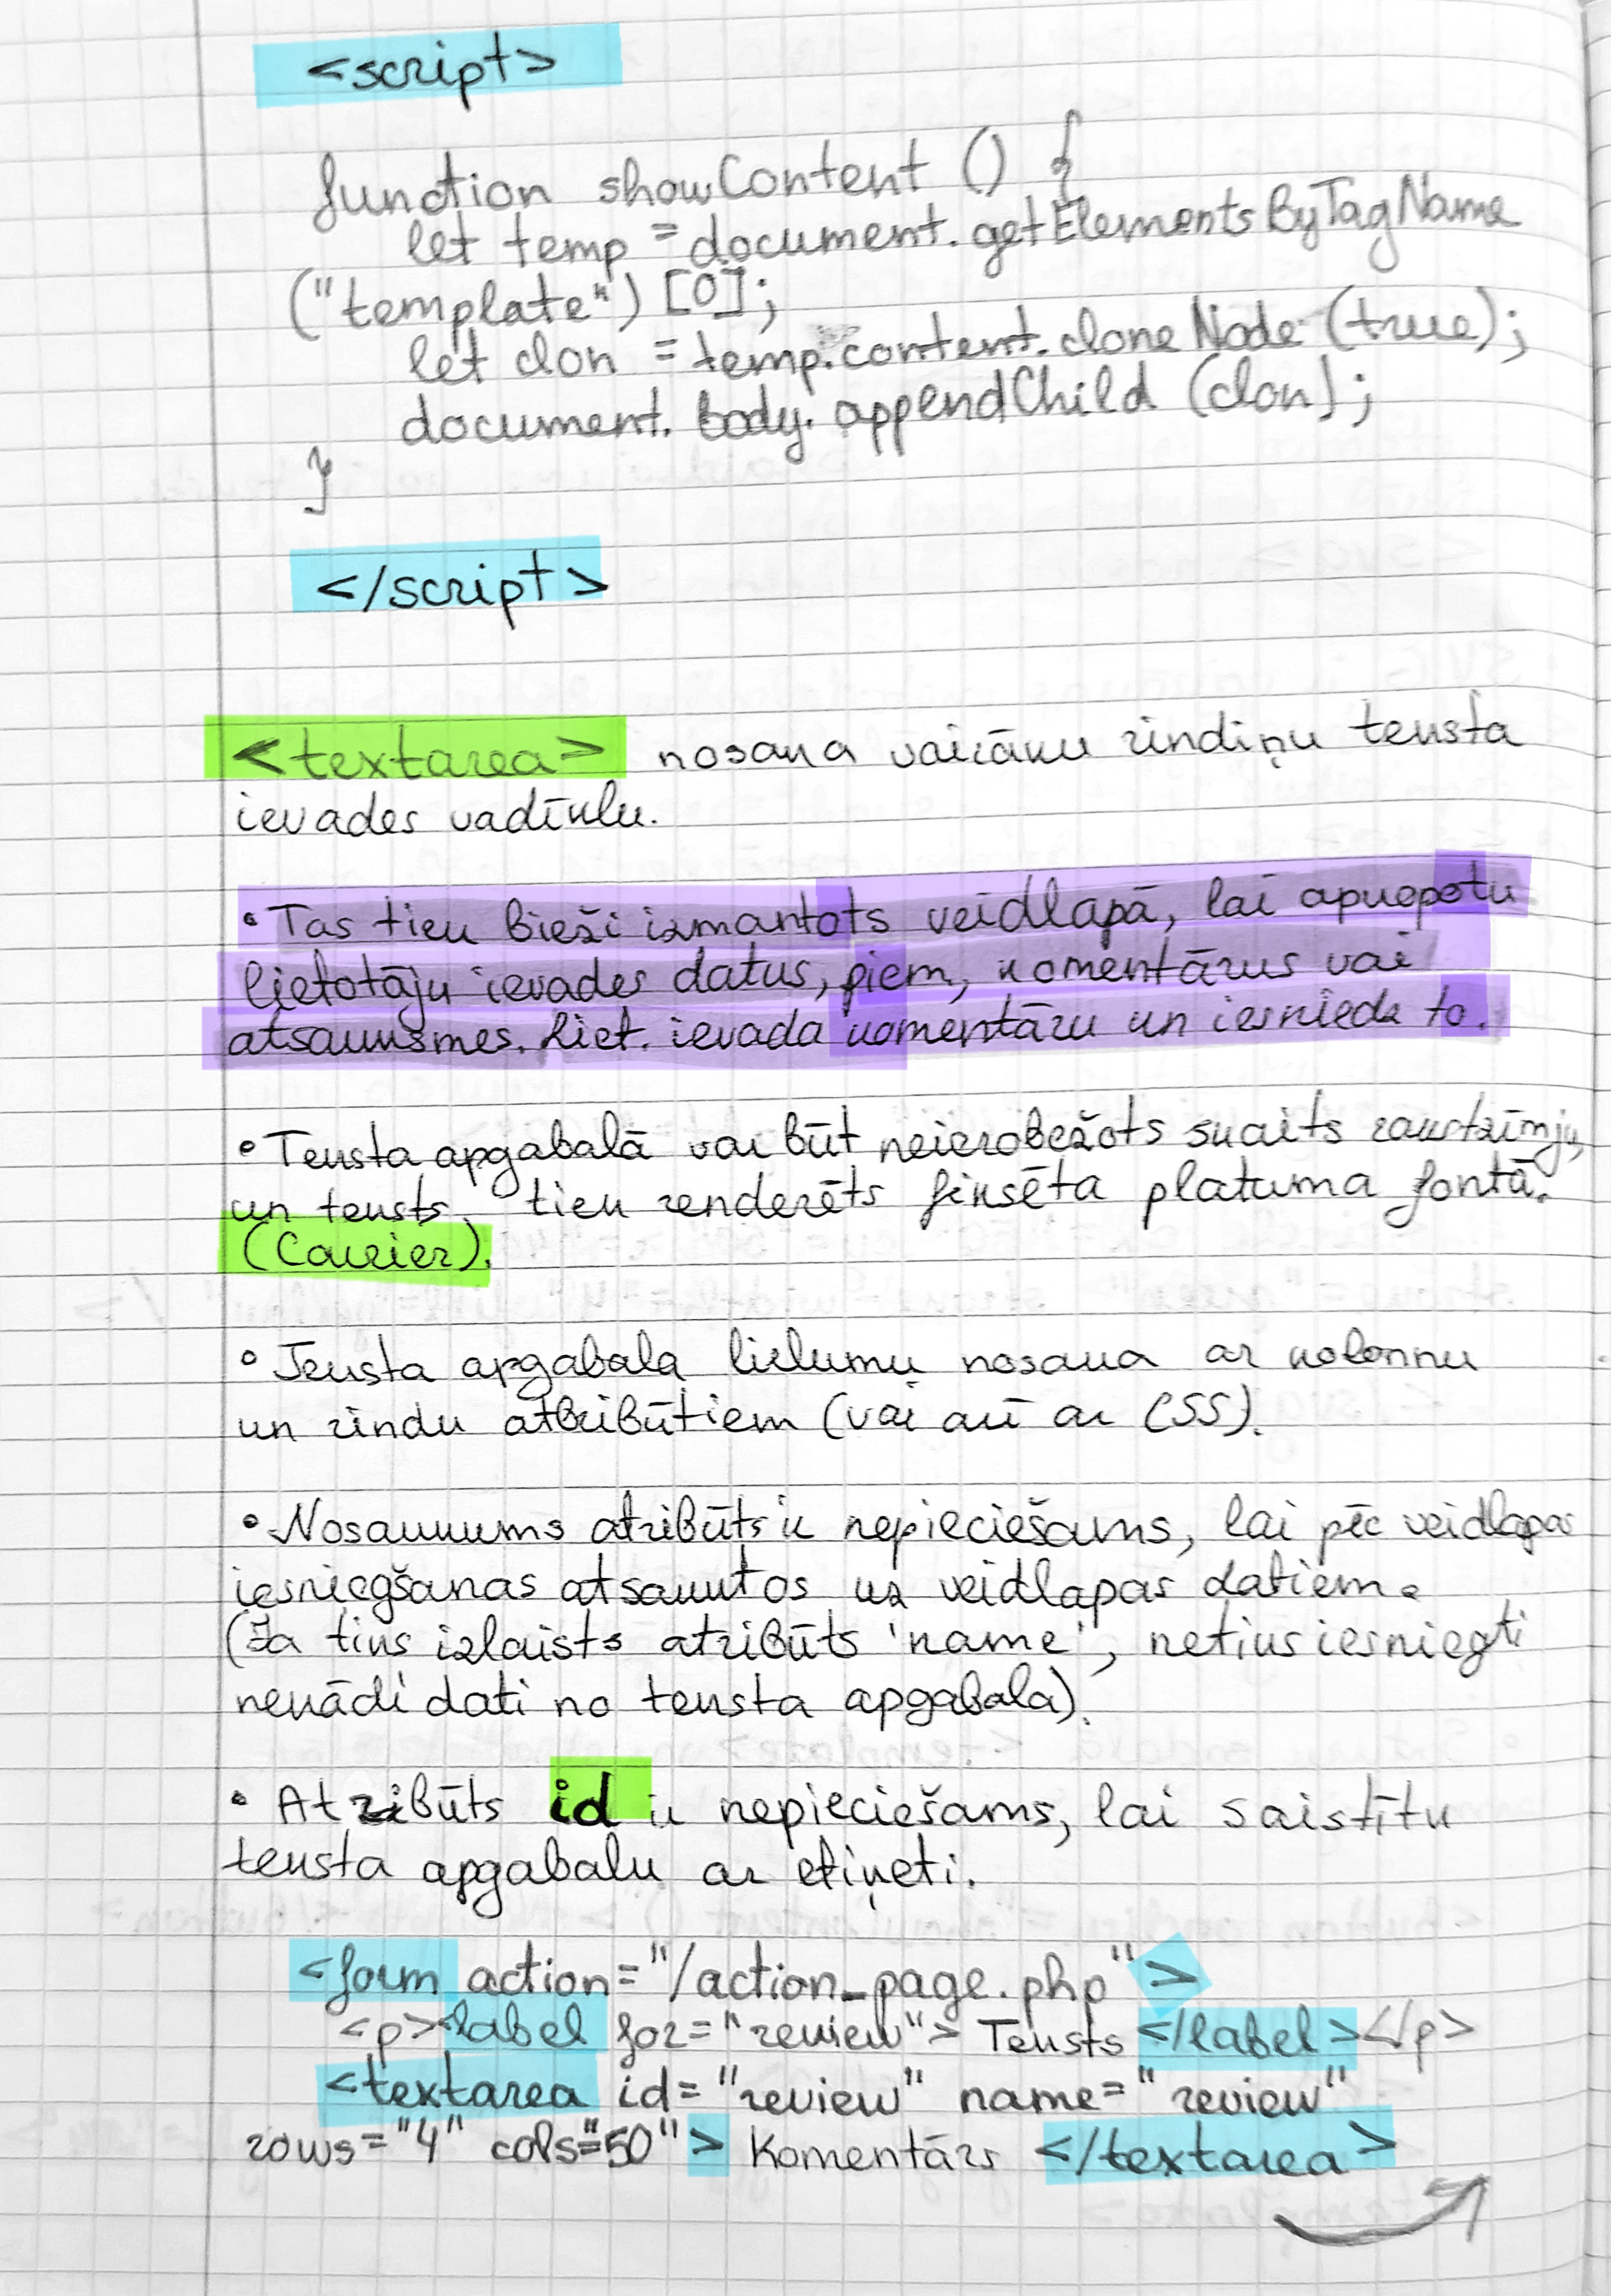 <script>
function showContent () {
let temp = document.getElementsByTagName
("template") [0];
let clon = temp.content.cloneNode (true);
document.body.appendChild (clon);
}
</script>
<textarea> nosaka vairāku rindiņu teksta
ievades vadīklu.
• Tas tiek bieži izmantots veidlapā, lai apkopotu
lietotāju ievades datus, piem, komentārus vai
atsauksmes. Liet. ievada komentāru un iesniedz to.
• Teksta apgabalā var būt neierobežots skaits rakstzīmju,
un teksts tiek renderēts fiksēta platuma fontā.
(Courier).
• Teksta apgabala lielumu nosaka ar kolonnu
un rindu atribūtiem (vai arī ar CSS).
• Nosaukums atribūts ir nepieciešams, lai pēc veidlapas
iesniegšanas atsauktos uz veidlapas datiem.
(Ja tiks izlaists atribūts 'name', netiks iesniegti
nekādi dati no teksta apgabala).
• Atribūts id ir nepieciešams, lai saistītu
teksta apgabalu ar etiķeti.
<form action="/action_page.php">
<p><label for="review"> Teksts </label></p>
<textarea id="review" name="review"
rows="4" cols="50"> Komentārs </textarea>